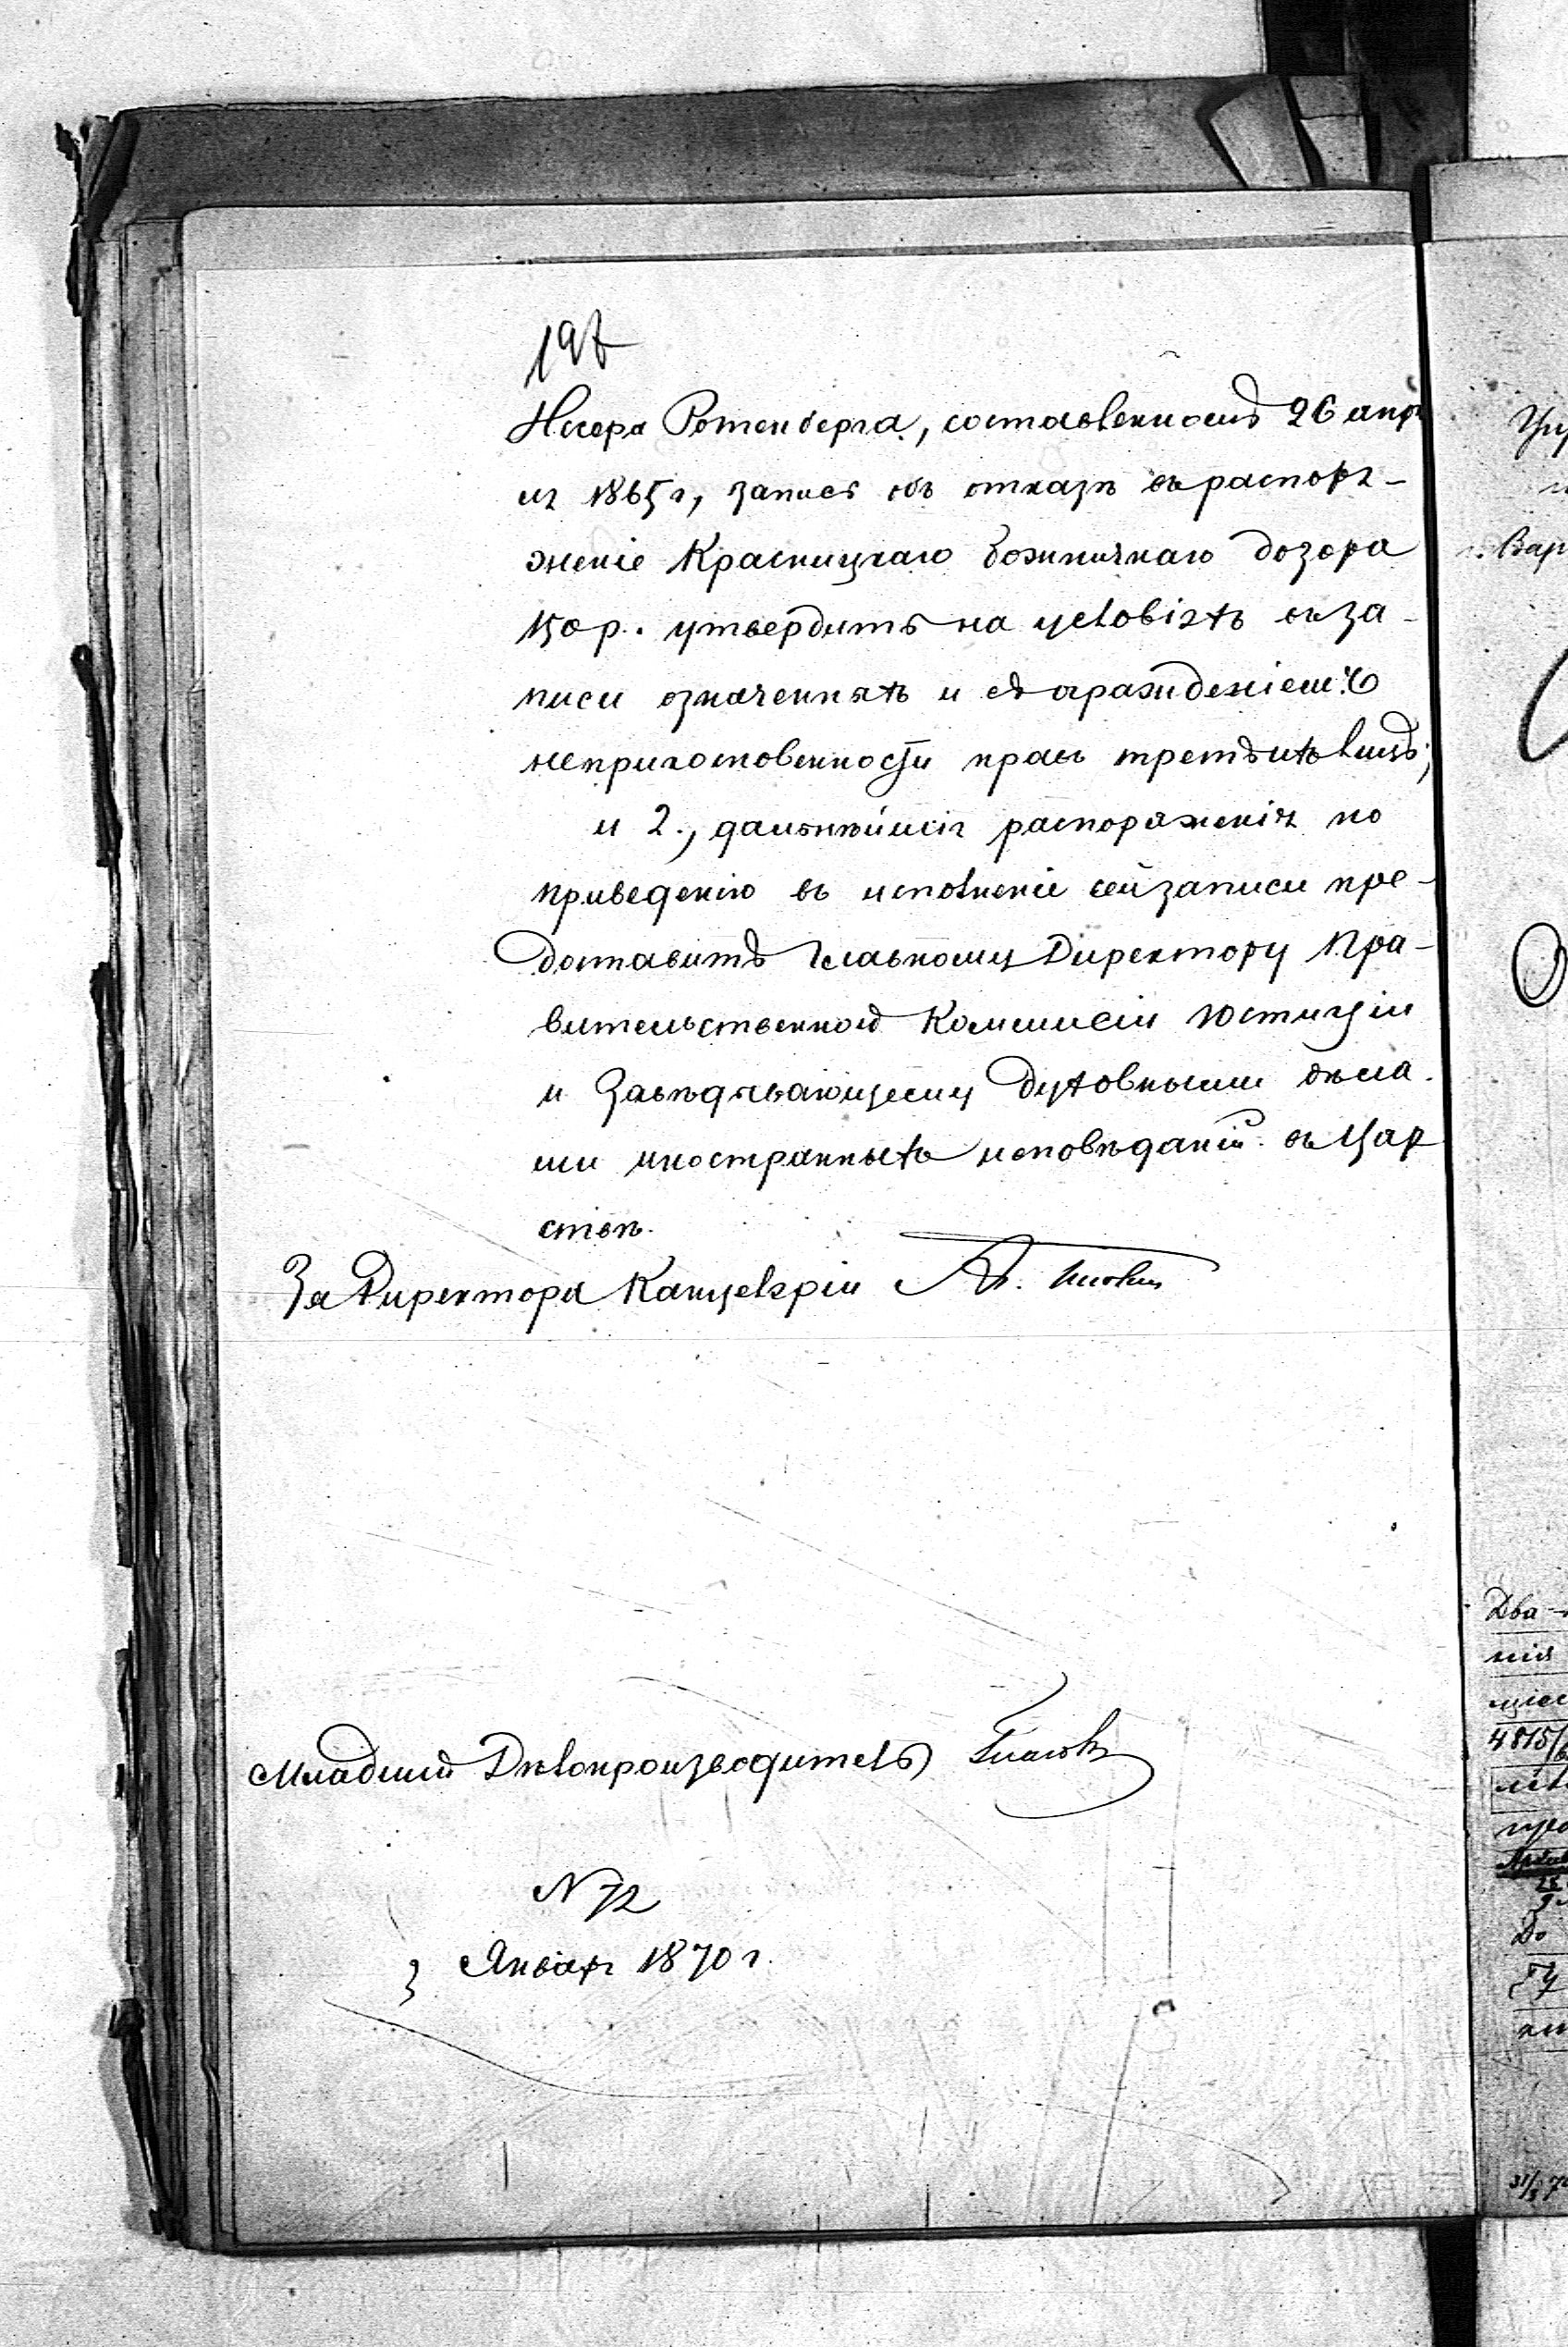 197
Ротенберга, составленною 26 апрѣ
ля 1865 г, запись объ отказѣ въ распоря-
женіе Красницкаго божничнаго дозора
150 р. утвердить на условіяхъ въ за-
писи означенныхъ и съ огражденіемъ
неприкосновенности правъ третьихъ лицъ;
и 2., дальнѣйшія распоряженія по
приведенію въ исполненіе сей записи пре-
доставить Главному Директору Пра-
вительственной Коммисіи Юстиціи
и Завѣдывающему Духовными дѣла-
ми иностранныхъ исповѣданій въ Цар
ствѣ.
За Директора Канцеляріи
Младшій Дѣлопроизводитель
N 72
3 Января 1870 г.
Вар
Два
нія
4815/
До
31/3 70